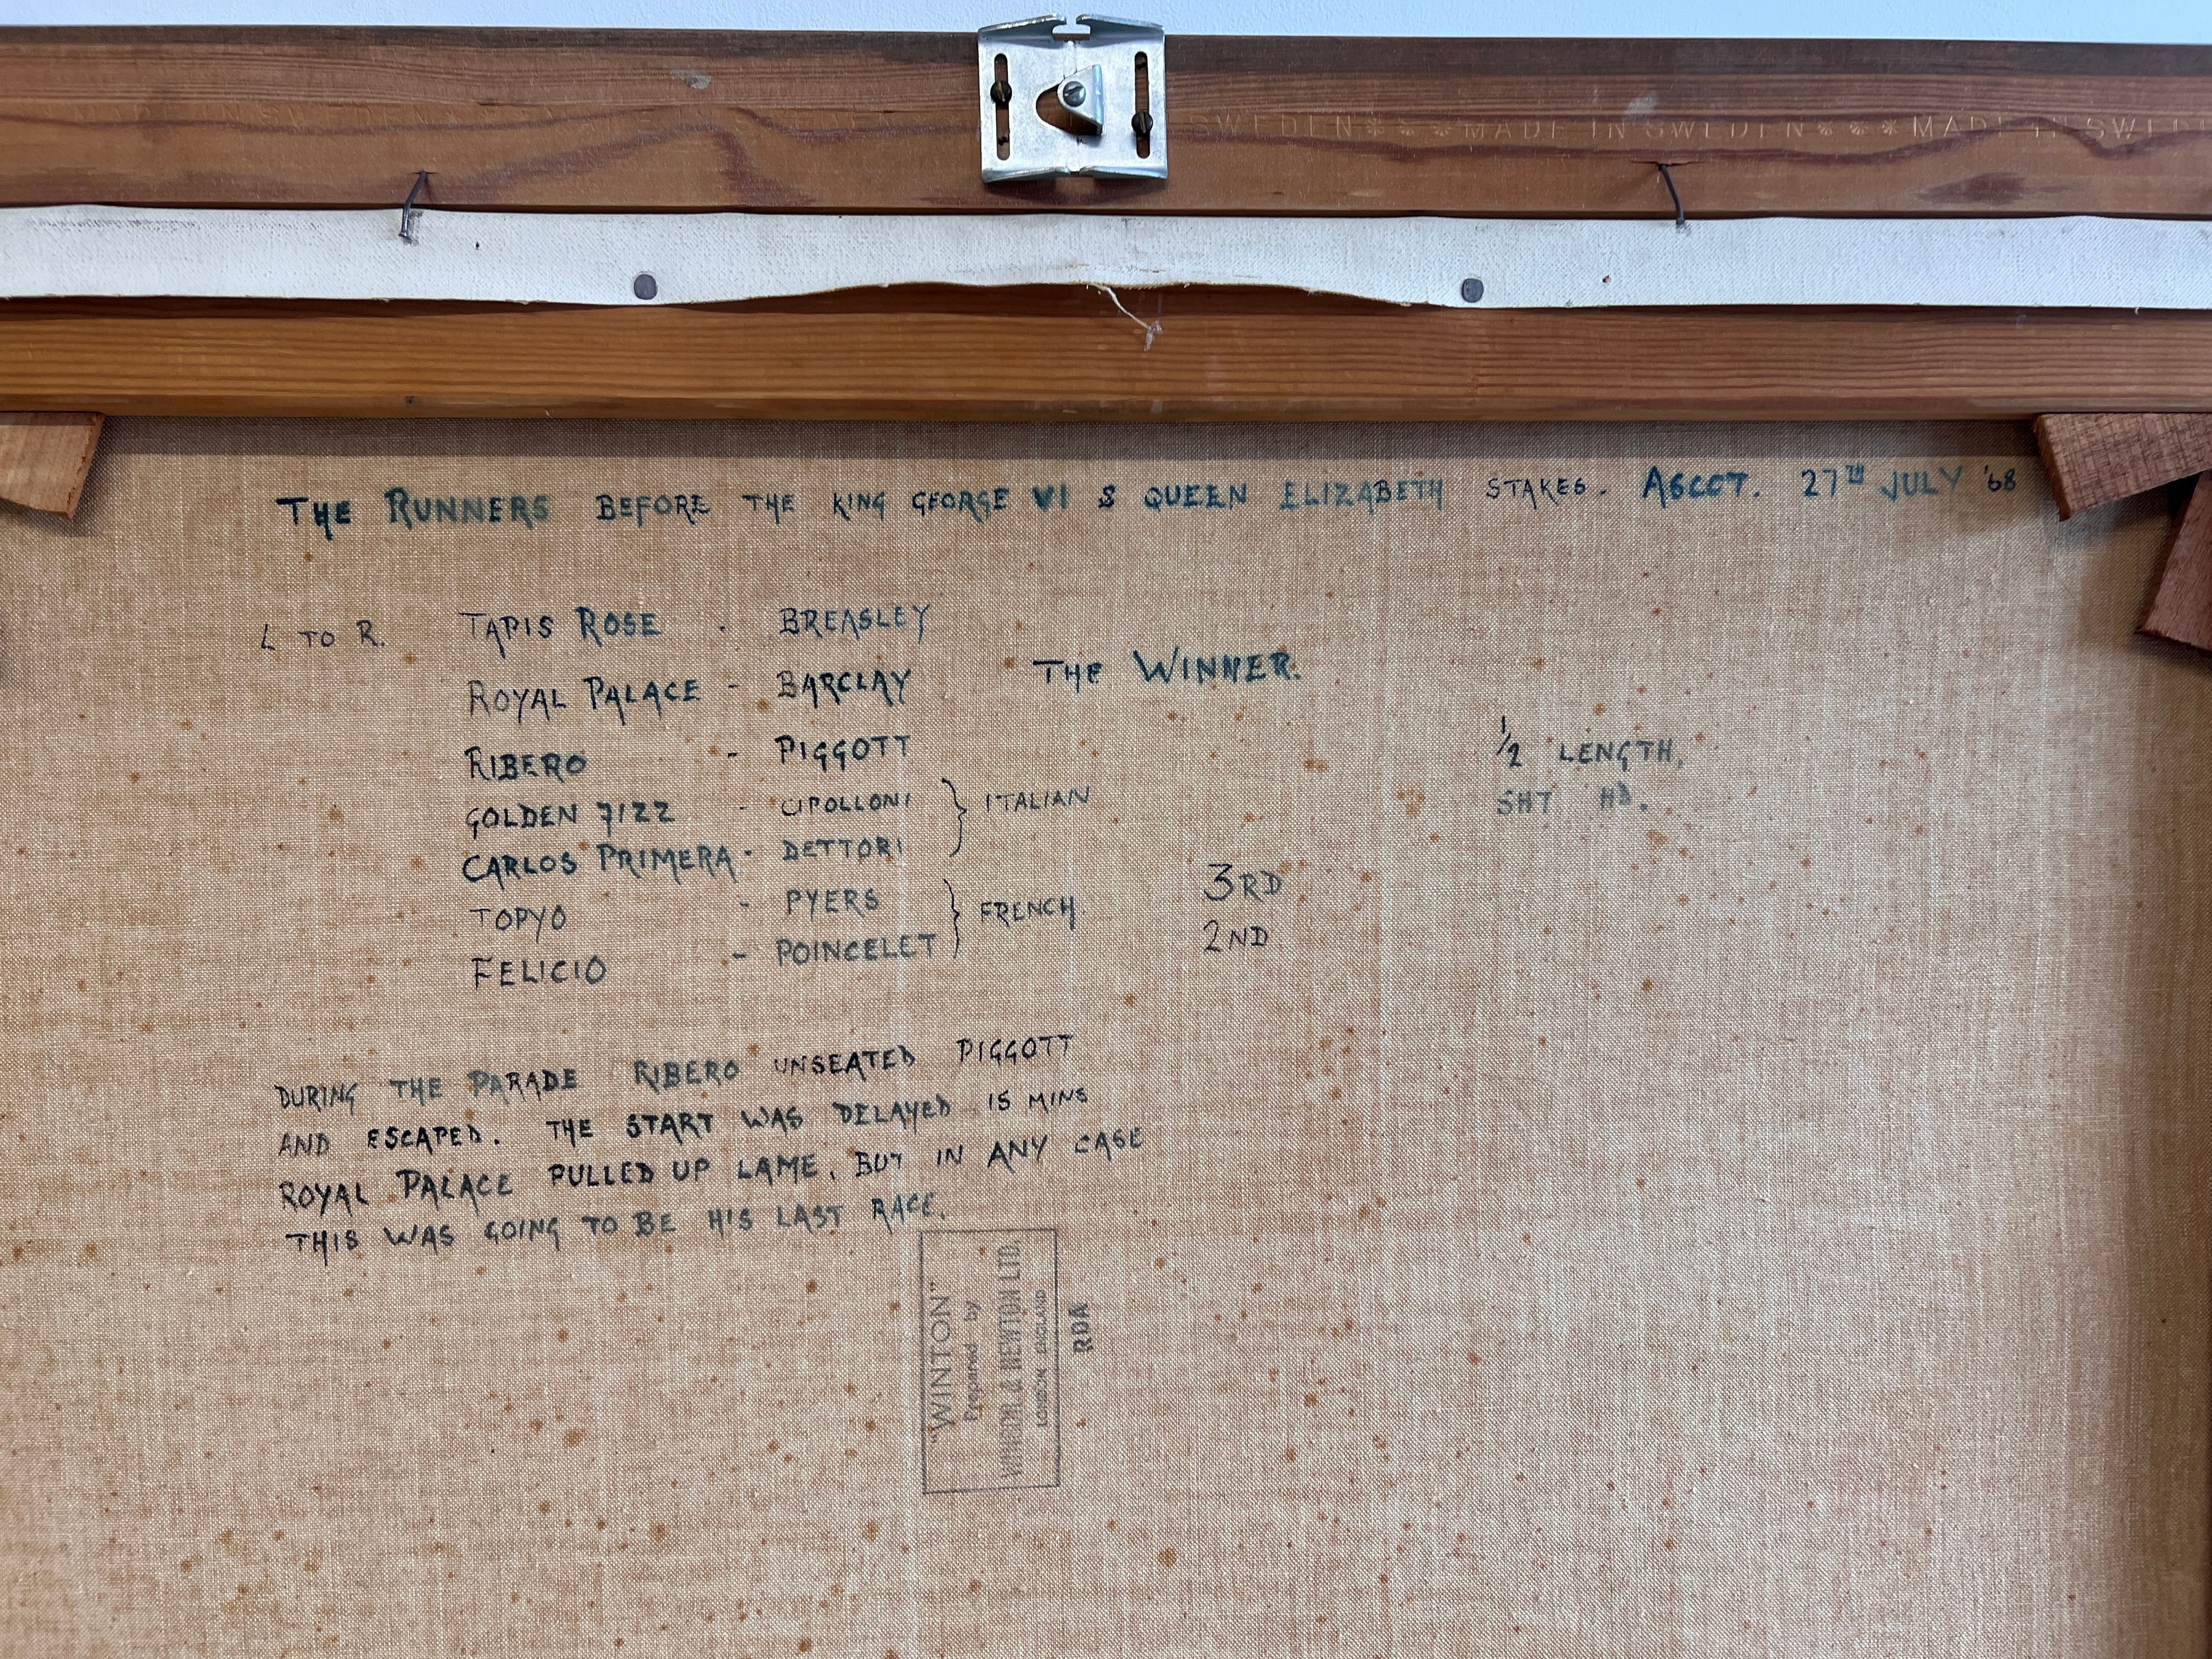 SWEDEN*** MADE IN SWEDEN *** MADE IN SWED
THE RUNNERS BEFORE THE KING GEORGE VI & QUEEN ELIZABETH STAKES. ASCOT. 27TH JULY '68
L TO R. TAPIS ROSE . BREASLEY
ROYAL PALACE - BARCLAY THE WINNER.
RIBERO - PIGGOTT ½ LENGTH,
GOLDEN 7122 - CIPOLLONI } ITALIAN SHT HD.
CARLOS PRIMERA - DETTORI
TOPYO - PYERS } FRENCH. 3RD
FELICIO - POINCELET 2ND
DURING THE PARADE RIBERO UNSEATED PIGGOTT
AND ESCAPED. THE START WAS DELAYED 15 MINS
ROYAL PALACE PULLED UP LAME, BUT IN ANY CASE
THIS WAS GOING TO BE HIS LAST RACE.
"WINTON"
Prepared by
WINSOR & NEWTON LTD.
LONDON ENGLAND
RDA